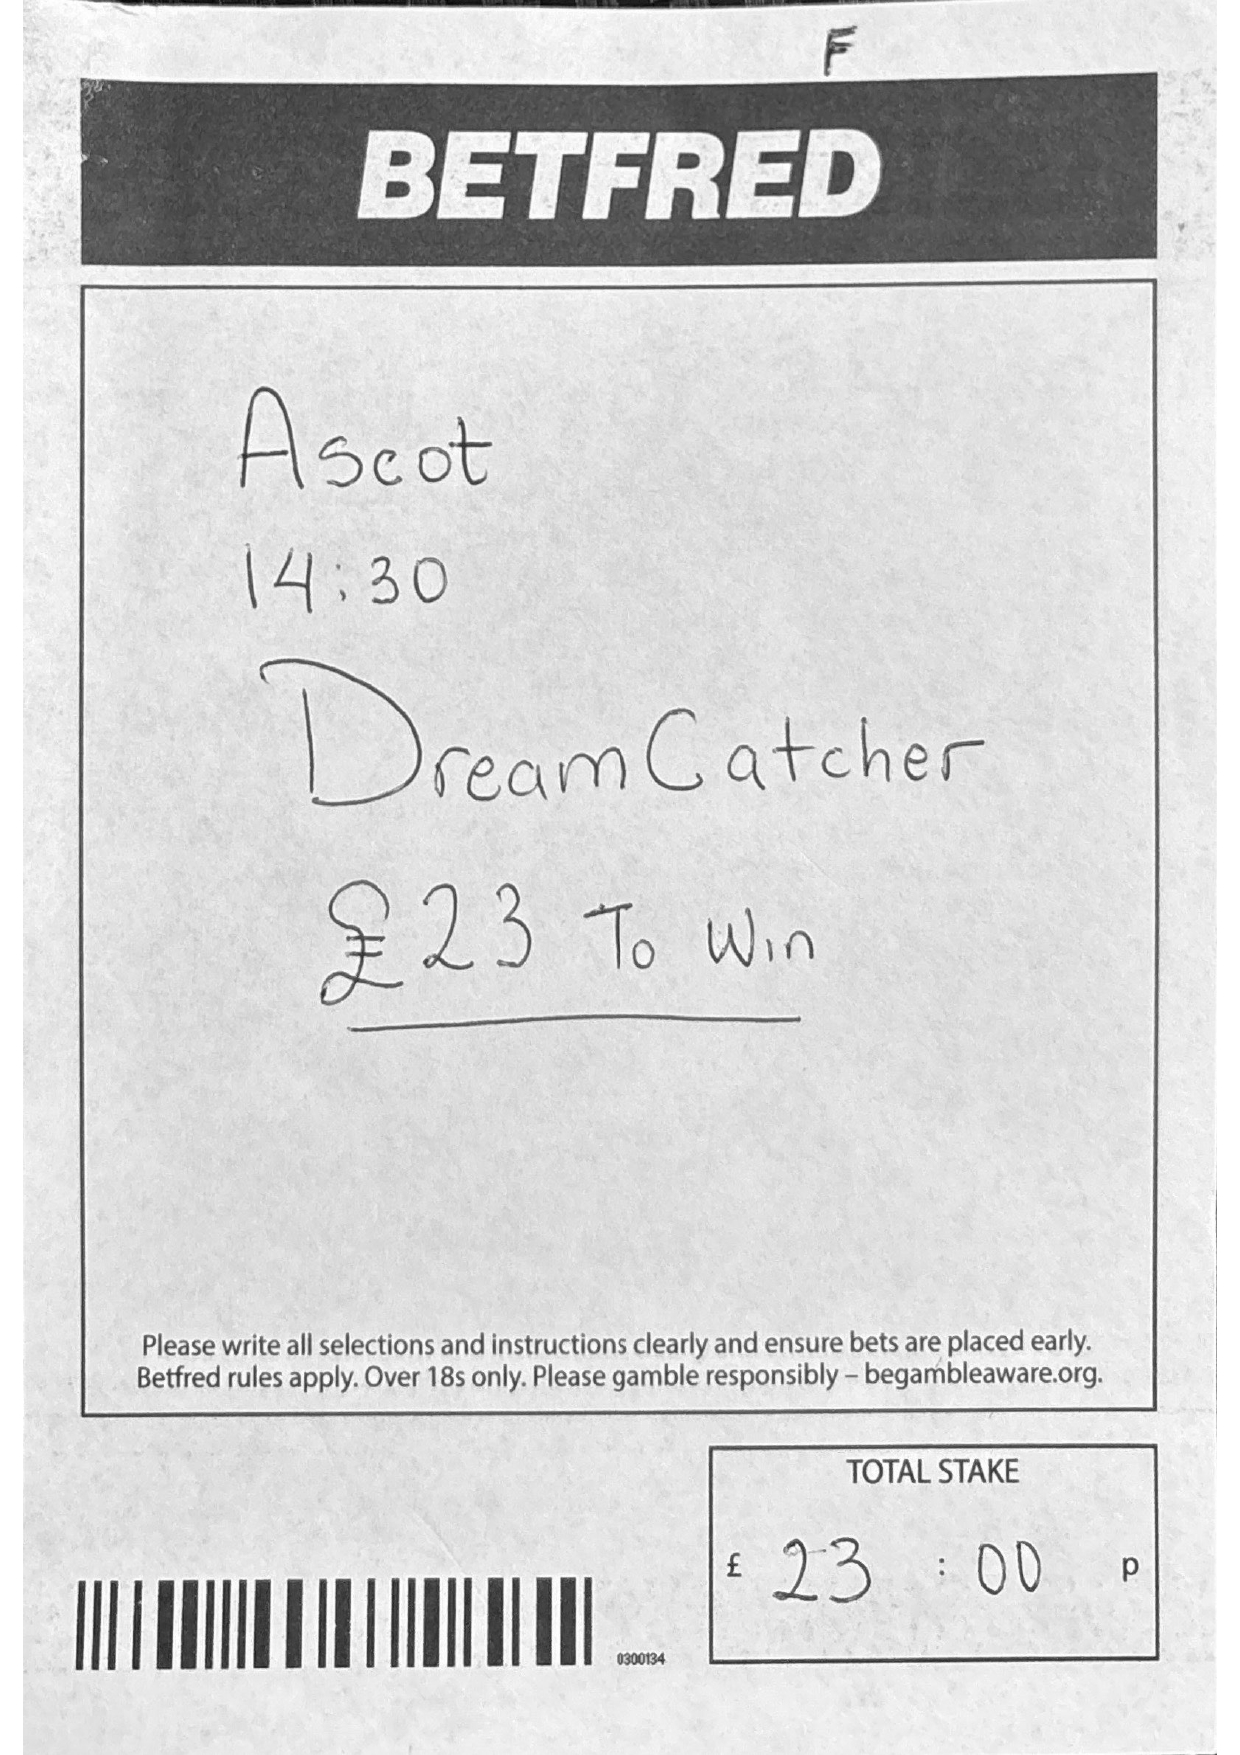 F
BETFRED
Ascot
14:30
DreamCatcher
£23 To Win
Please write all selections and instructions clearly and ensure bets are placed early.
Betfred rules apply. Over 18s only. Please gamble responsibly – begambleaware.org.
TOTAL STAKE
£ 23 : 00 p
0300134